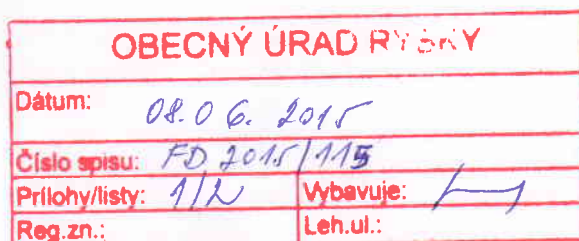 OBECNÝ ÚRAD RYBKY
Dátum: 08.06. 2015
Číslo spisu: FD 2015/115
Prílohy/listy: 1/2 Vybavuje:
Reg.zn.: Leh.ul.: